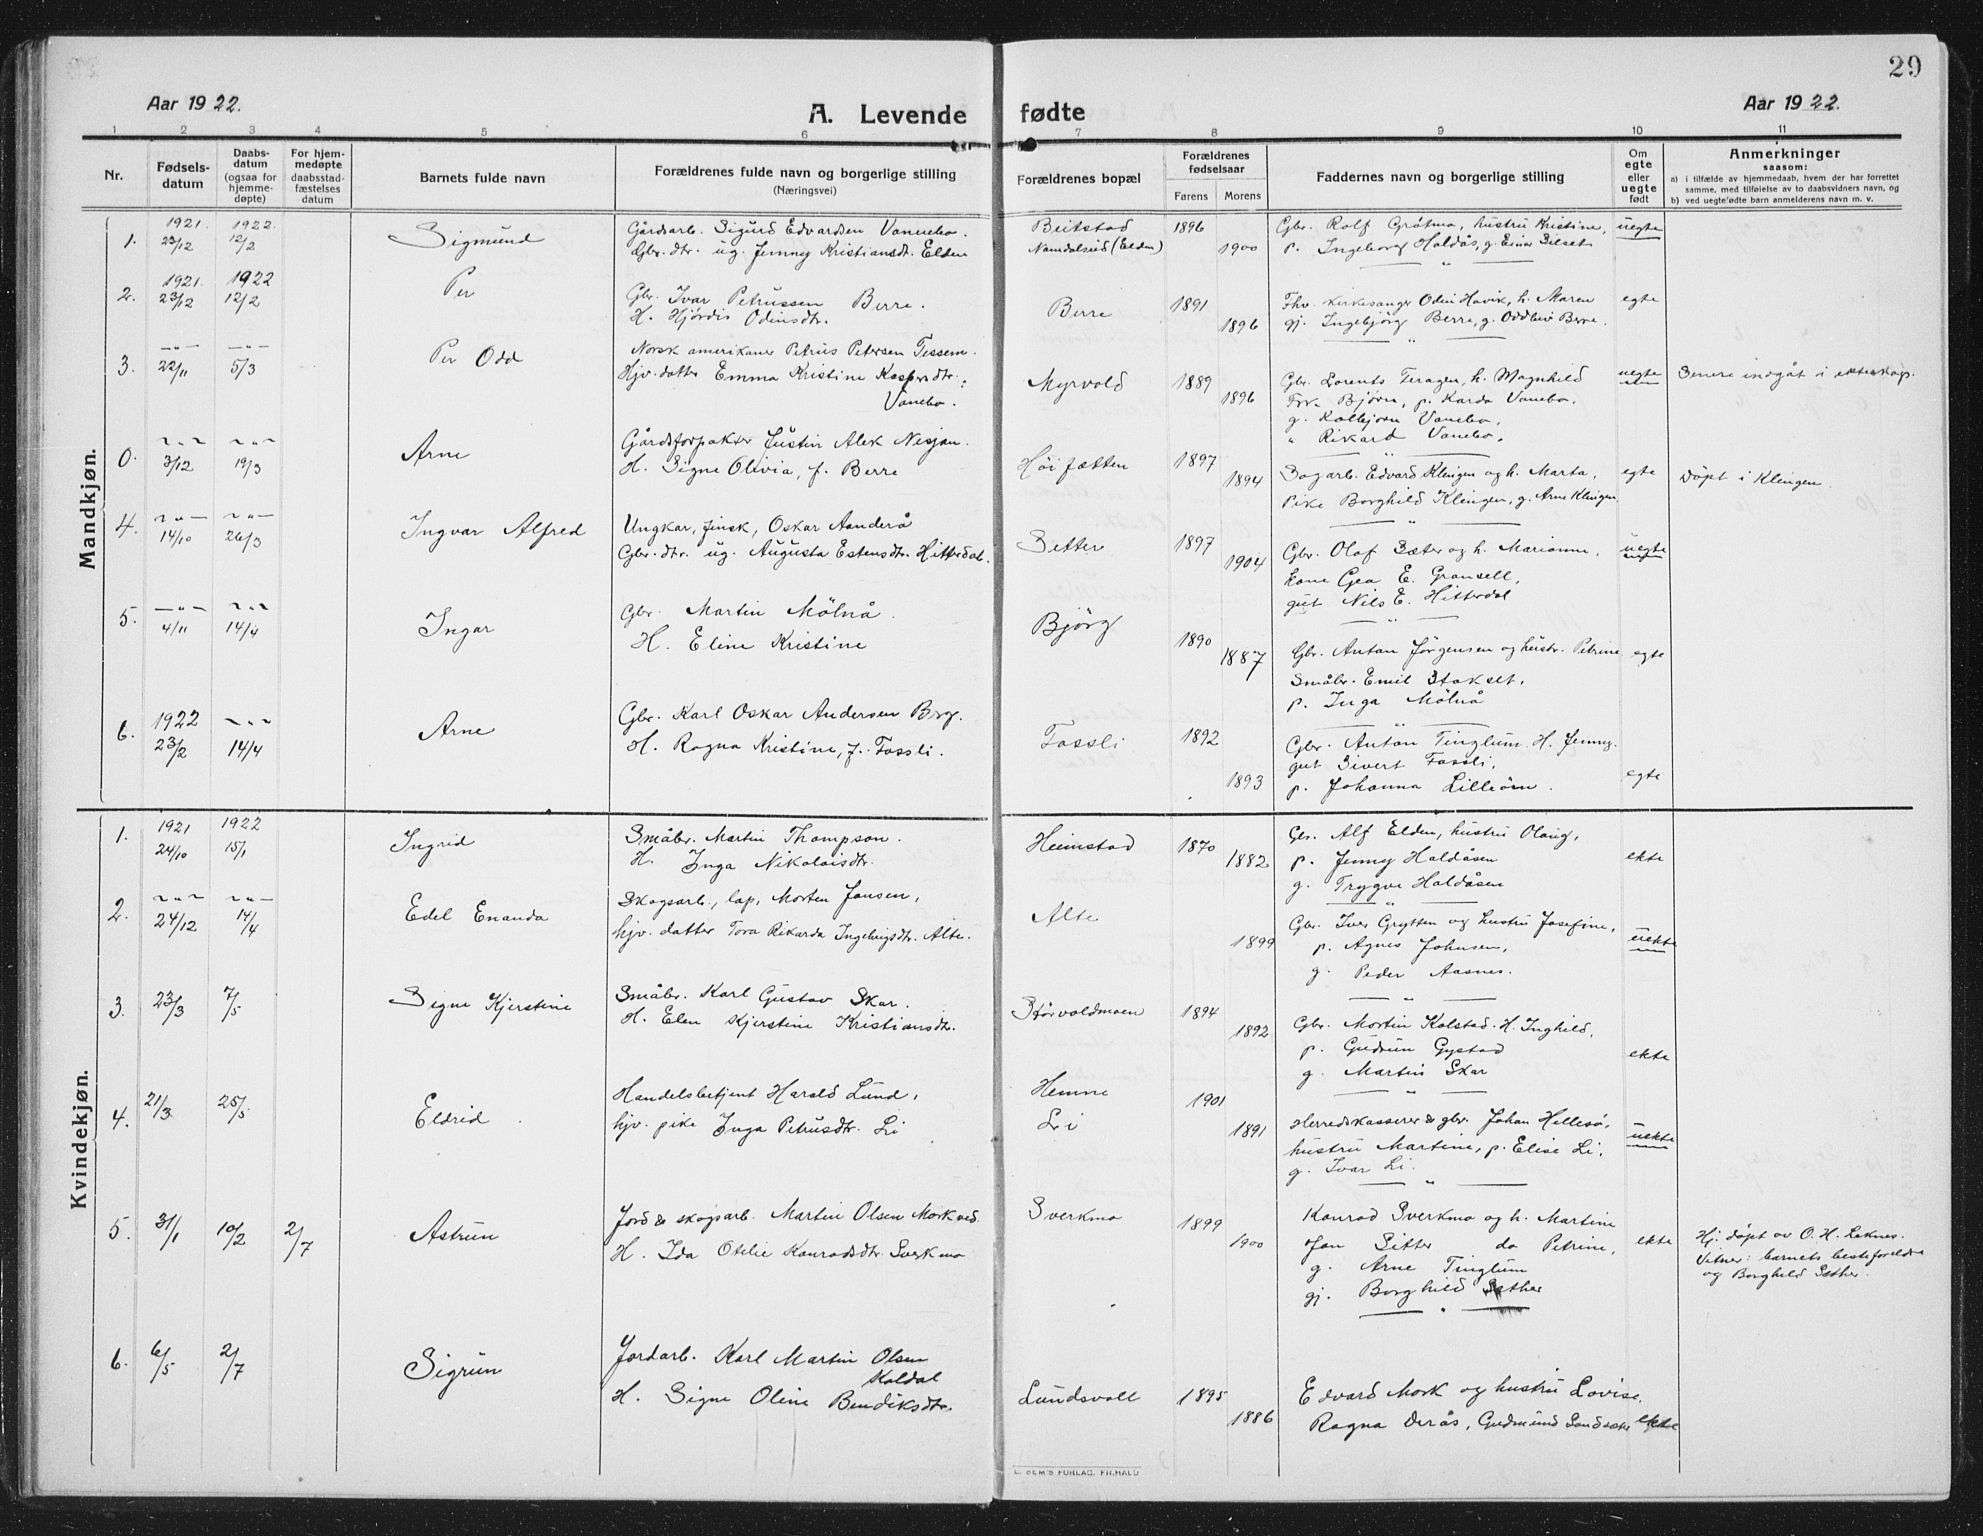 29
Aar 1922.
A. Levende fødte
Aar 1922.
1 2 3 4 5 6 7 8 9 10 11
Nr.
Fødsels-
datum
Daabs-
datum
(ogsaa for
hjemme-
døpte)
For hjem-
medøpte
daabsstad-
fæstelses
datum
Barnets fulde navn
Forældrenes fulde navn og borgerlige stilling
(Næringsvei)
Forældrenes bopæl
Forældrenes
fødselsaar
Farens Morens
Faddernes navn og borgerlige stilling
Om
egte
eller
uegte
født
Anmerkninger
saasom:
a) i tilfælde av hjemmedaab, hvem der har forrettet
samme, med tilføielse av to daabsvidners navn, og
b) ved uegtefødte barn anmelderens navn m. v.
Mandkjøn.
1. 1921 23/12 1922 12/2 Sigmund
Gårdsarb. Sigurd Edvardsen Vannebo.
Gbr. dtr. ug. Jenny Kristiansdt. Elden
Beitstad
Namdalseid (Elden)
1896 1900
Gbr. Rolf Grøtma, hustru Kristine,
p. Ingeborg Haldås, g. Einar Silset
uegte
2. 1921 23/12 1922 12/2 Per
Gbr. Ivar Petrussen Berre.
H. Hjördis Odinsdtr.
Berre
1891 1896
Fhv. kirkesanger Odin Havik, h. Maren
gj. Ingebjörg Berre, g. Oddleiv Berre.
egte
3. 22/11 5/3 Per Odd
Norsk amerikaner Petrus Petersen Tessem.
Hjv. datter Emma Kristine Kaspersdtr.
Vanebo.
Myrvold
1889 1896
Gbr. Lorents Feragen, h. Magnhild
Frk. Bjørn, p. Karda Vanebo.
g. Kolbjørn Vanebo.
" Rikard Vanebo.
uegte
Senere indgåt i ekteskap.
0. 3/12 19/3 Arne
Gårdsforpakter Justin Alek Nesjan.
H. Signe Olivia, f. Berre
Höifætten
1897 1894
Sagarb. Edvard Klingen og h. Marta,
Pike Borghild Klingen, g. Arne Klingen
egte
Döpt i Klingen.
4. 14/10 26/3 Ingvar Alfred
Ungkar, finsk, Oskar Aanderå
Gbr. dtr. ug. Augusta Estensdtr. Hitterdal.
Setter
1897 1904
Gbr. Olaf Sæter og h. Marianne,
kone Gea E. Gransell,
gut Nils E. Hitterdal
uegte
5. 4/11 14/4 Ingar
Gbr. Martin Mölnå.
H. Eline Kristine
Bjørg
1890 1887
Gbr. Anton Jörgensen og hustr. Petrine
Småbr. Emil Stokset,
p. Inga Mölnå
egte
6. 1922 23/2 14/4 Arne
Gbr. Karl Oskar Andersen Brg.
H. Ragna Kristine, f. Fossli.
Fossli
1892 1893
Gbr. Anton Tinglum. H. Jenny.
gut Sivert Fossli,
p. Johanna Lilleöien.
egte
Kvindekjøn.
1. 1921 24/10 1922 15/1 Ingrid
Småbr. Martin Thompson.
H. Inga Nikolaisdtr.
Heimstad
1870 1882
Gbr. Alf Elden, hustru Olaug,
p. Jenny Haldåsen
g. Trygve Haldåsen
ekte
2. 24/12 14/4 Edel Enanda
Skogsarb., lap, Morten Jonsen,
hjv. datter Tora Rikarda Ingebrigsdtr. Alte.
Alte
1899
Gbr. Iver Grytten og hustru Josefine,
p. Agnes Johnsen,
g. Peder Aasnes.
uekte
3. 23/3 7/5 Signe Kjerstine
Småbr. Karl Gustav Skar.
H. Elen Kjerstine Kristiansdtr.
Störvoldmoen
1894 1892
Gbr. Mortin Kolstad. H. Inghild,
p. Gudrun Gystad
g. Martin Skar
ekte
4. 21/3 25/5 Eldrid
Handelsbetjent Harald Lund,
hjv. pike Inga Petrusdtr. Li
Hemne
Li
1901 1891
Herredskasserer & gbr. Johan Hillesö,
hustru Martine, p. Elise Li,
g. Ivar Li.
uekte
5. 31/1 10/2 2/7 Astrun
Jord & skogsarb. Martin Olsen Morkved.
H. Ida Otelie Konradsdtr. Sverkmo
Sverkmo
1899 1900
Konrad Sverkmo og h. Martine
Jon Sitter do Petrine,
g. Arne Tinglum
gj. Borghild Sæther
ekte
Hj. döpt av O. H. Leknes.
Vitner: barnets besteforeldre
og Borghild Sæther.
6. 6/5 2/7 Sigrun
Jordarb. Karl Martin Olsen
Kaldal
H. Signe Oline Bendiksdtr.
Lundsvoll
1895 1886
Edvard Mork og hustru Lovise.
Ragna Derås, Gudmund
ekte
E. SEM'S FORLAG, FR.HALD